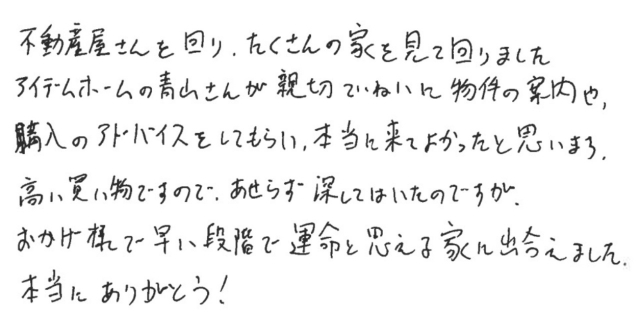 不動産屋さんを回り、たくさんの家を見て回りました
アイデムホームの青山さんが親切ていねいに物件の案内や、
購入のアドバイスをしてもらい、本当に来てよかったと思います。
高い買い物ですので、あせらず探してはいたのですが、
おかげ様で早い段階で運命と思える家に出合えました。
本当にありがとう!